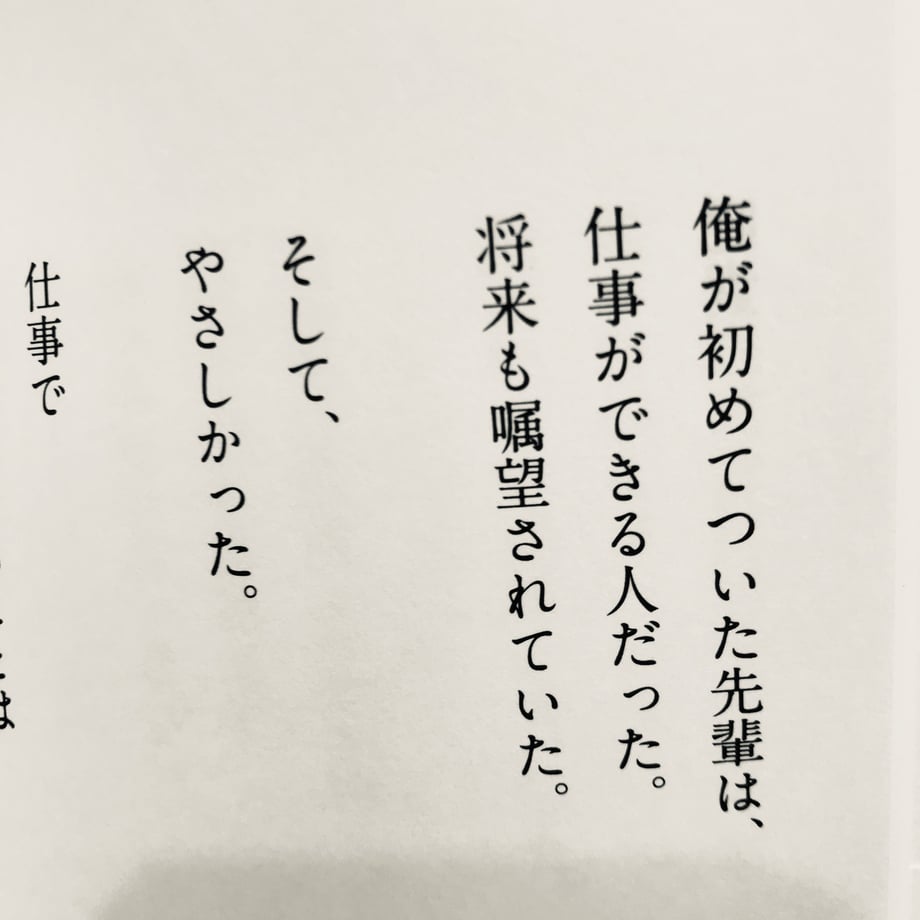 俺が初めてついた先輩は、
仕事ができる人だった。
将来も嘱望されていた。
そして、
やさしかった。
仕事で